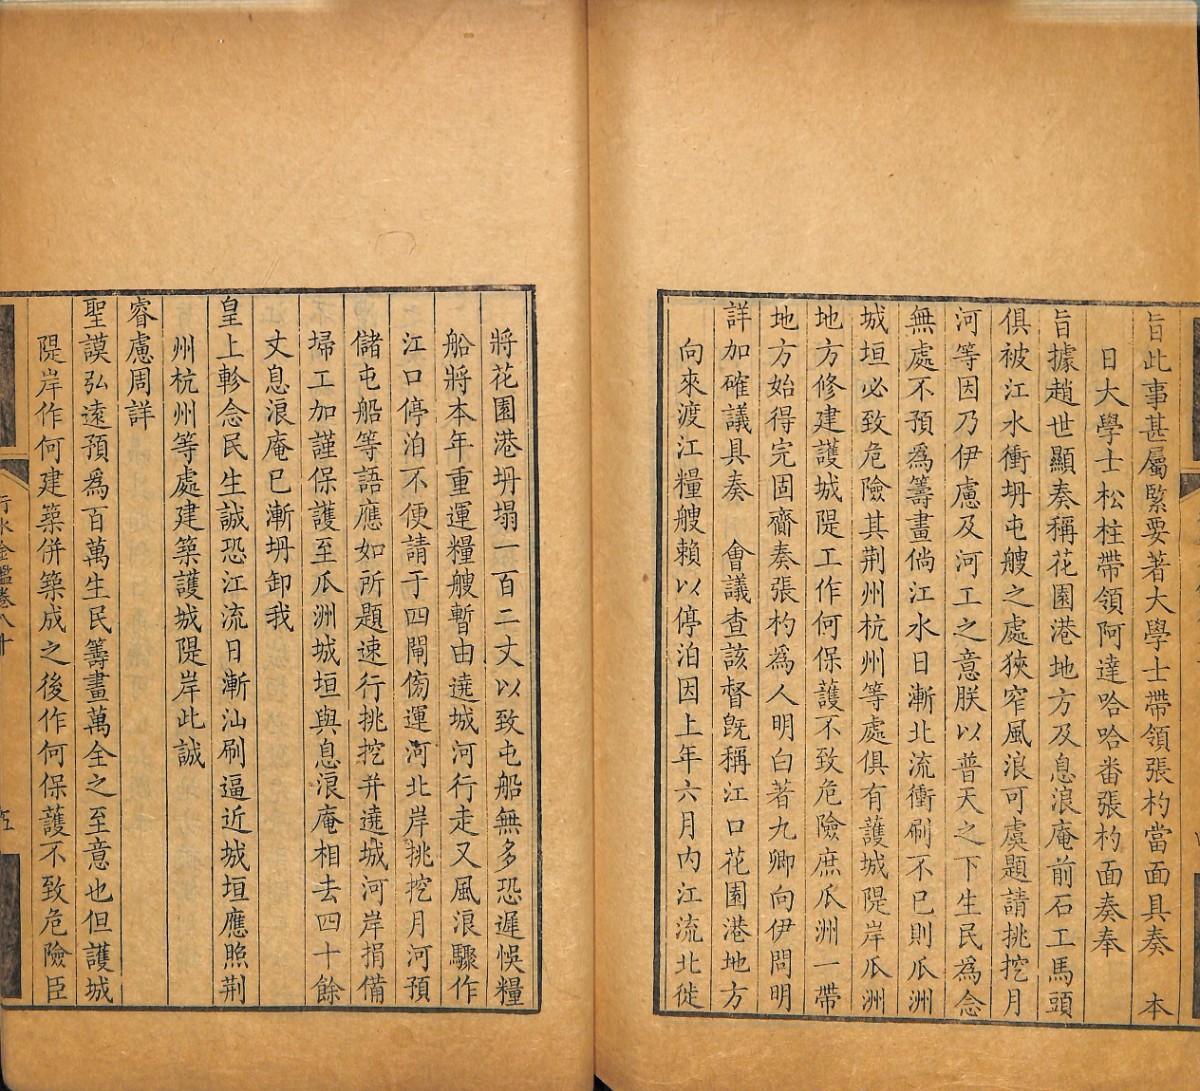 旨此事甚屬緊要著大學士帶領張杓當面具奏　本
日大學士松柱帶領阿達哈哈番張杓面奏奉
旨據趙世顯奏稱花園港地方及息浪庵前石工馬頭
俱被江水衝坍屯艘之處狹窄風浪可虞題請挑挖月
河等因乃伊慮及河工之意朕以普天之下生民為念
無處不預為籌畫倘江水日漸北流衝刷不已則瓜洲
城垣必致危險其荆州杭州等處俱有護城隄岸瓜洲
地方修建護城隄工作何保護不致危險庶瓜洲一帶
地方始得完固齎奏張杓為人明白著九卿向伊問明
詳加確議具奏　會議查該督旣稱江口花園港地方
向來渡江糧艘賴以停泊因上年六月內江流北徙
將花園港坍塌一百二丈以致屯船無多恐遲悞糧
船將本年重運糧艘暫由遶城河行走又風浪驟作
江口停泊不便請于四閘傍運河北岸挑挖月河預
儲屯船等語應如所題速行挑挖并遶城河岸捐備
埽工加謹保護至瓜洲城垣與息浪庵相去四十餘
丈息浪庵已漸坍卸我
皇上軫念民生誠恐江流日漸汕刷逼近城垣應照荆
州杭州等處建築護城隄岸此誠
睿慮周詳
聖謨弘遠預為百萬生民籌畫萬全之至意也但護城
隄岸作何建築併築成之後作何保護不致危險臣
行水金鑑卷八十
五